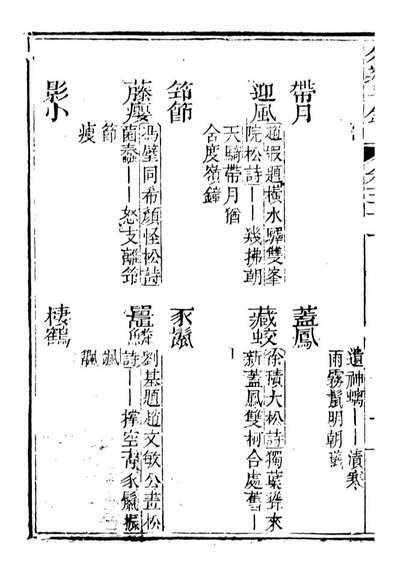 遺神螭——漬寒
雨霧鬣明朝曦
帶月
蓋鳳
迎風
趙嘏題橫水驛雙峯
院松詩——幾拂朝
天騎帶月猶
含度嶺鐘
藏蛟
徐積大松詩獨葉聳來
新蓋鳳雙柯合處舊—
—
筇節
豕鬣
藤癭
馮璧同希顏怪松詩
菌蠢——怒支離筇
節
痕
鼉鱗
劉基題趙文敏公畫松
詩——撐空豕鬣振
影小
棲鶴